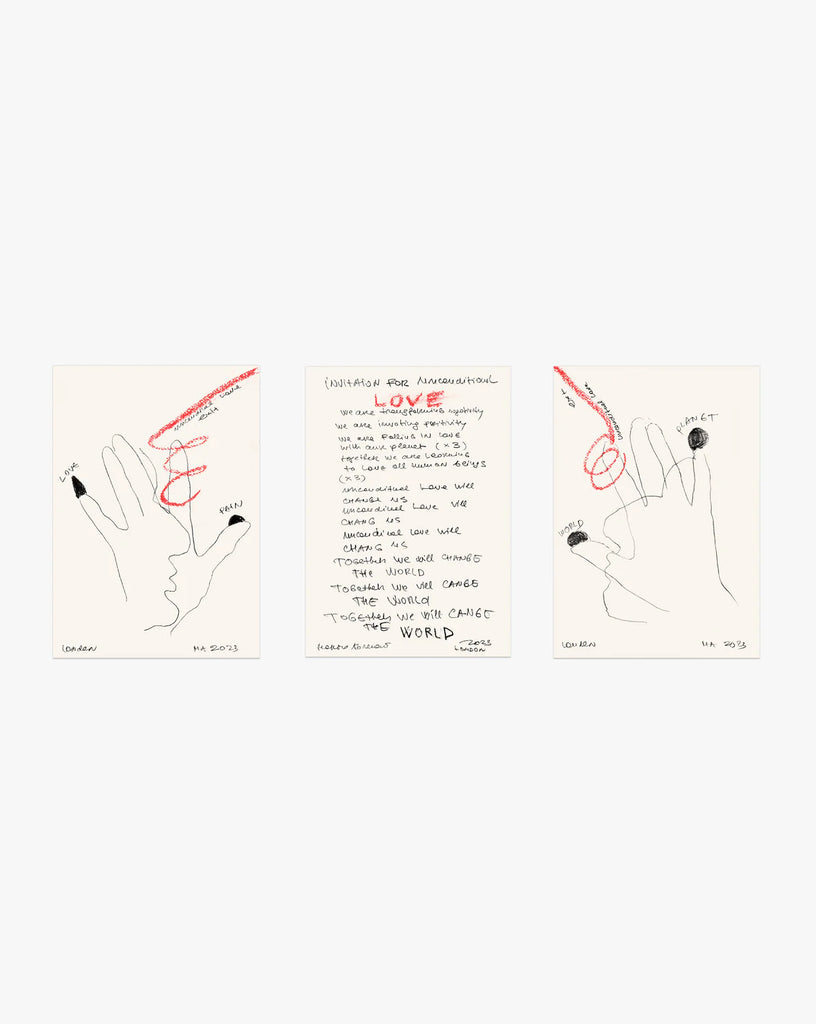 LOVE
PAIN
unconditional Love
Belt
London
MA 2023
iNVITATION FOR UNCONDITIONAL
LOVE
we are transforming negativity
we are invoting positivity
we are falling in love
with our planet (x3)
together we are learning
to love all human beings
(x3)
unconditinal Love will
CHANGE US
unconditinal Love will
CHANG US
unconditinal Love will
CHANG US
TOGETHER WE WILL CHANGE
THE WORLD
TOGETHER WE WILL CANGE
THE WORLD
TOGETHER WE WILL CANGE
THE WORLD
2023
LONDON
Belt
unconditional Love
PLANET
WORLD
London
MA 2023